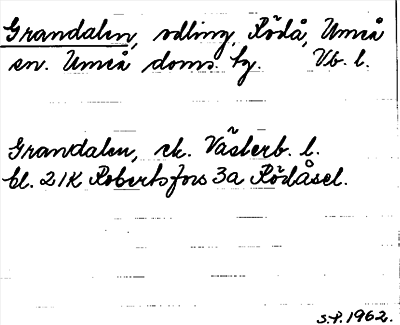 Grandalen, odling, Rödå, Umeå
sn. Umeå doms. hg. Vb. l.
Grandalen, ek. Västerb. l.
bl. 21K Robertsfors 3a Rödåsel.
S.P. 1962.